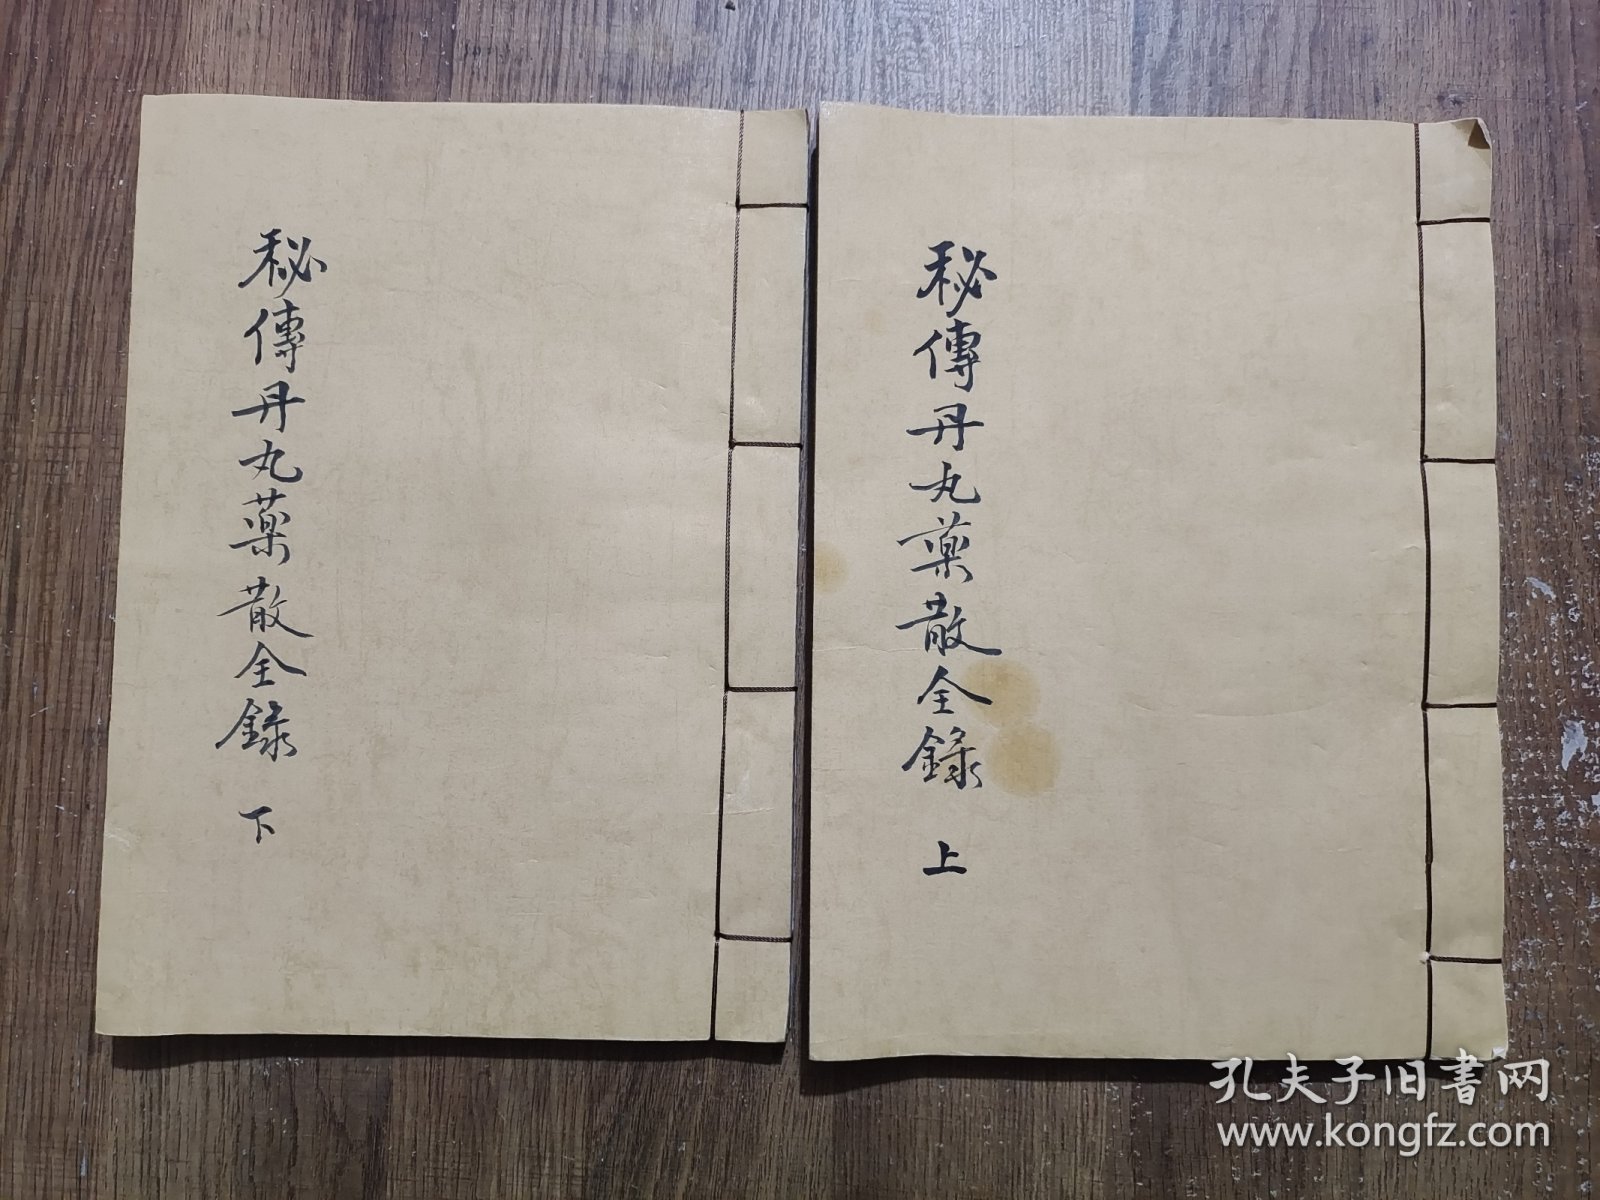 秘傳丹丸藥散全錄 上
秘傳丹丸藥散全錄 下
孔夫子旧書网
www.kongfz.com